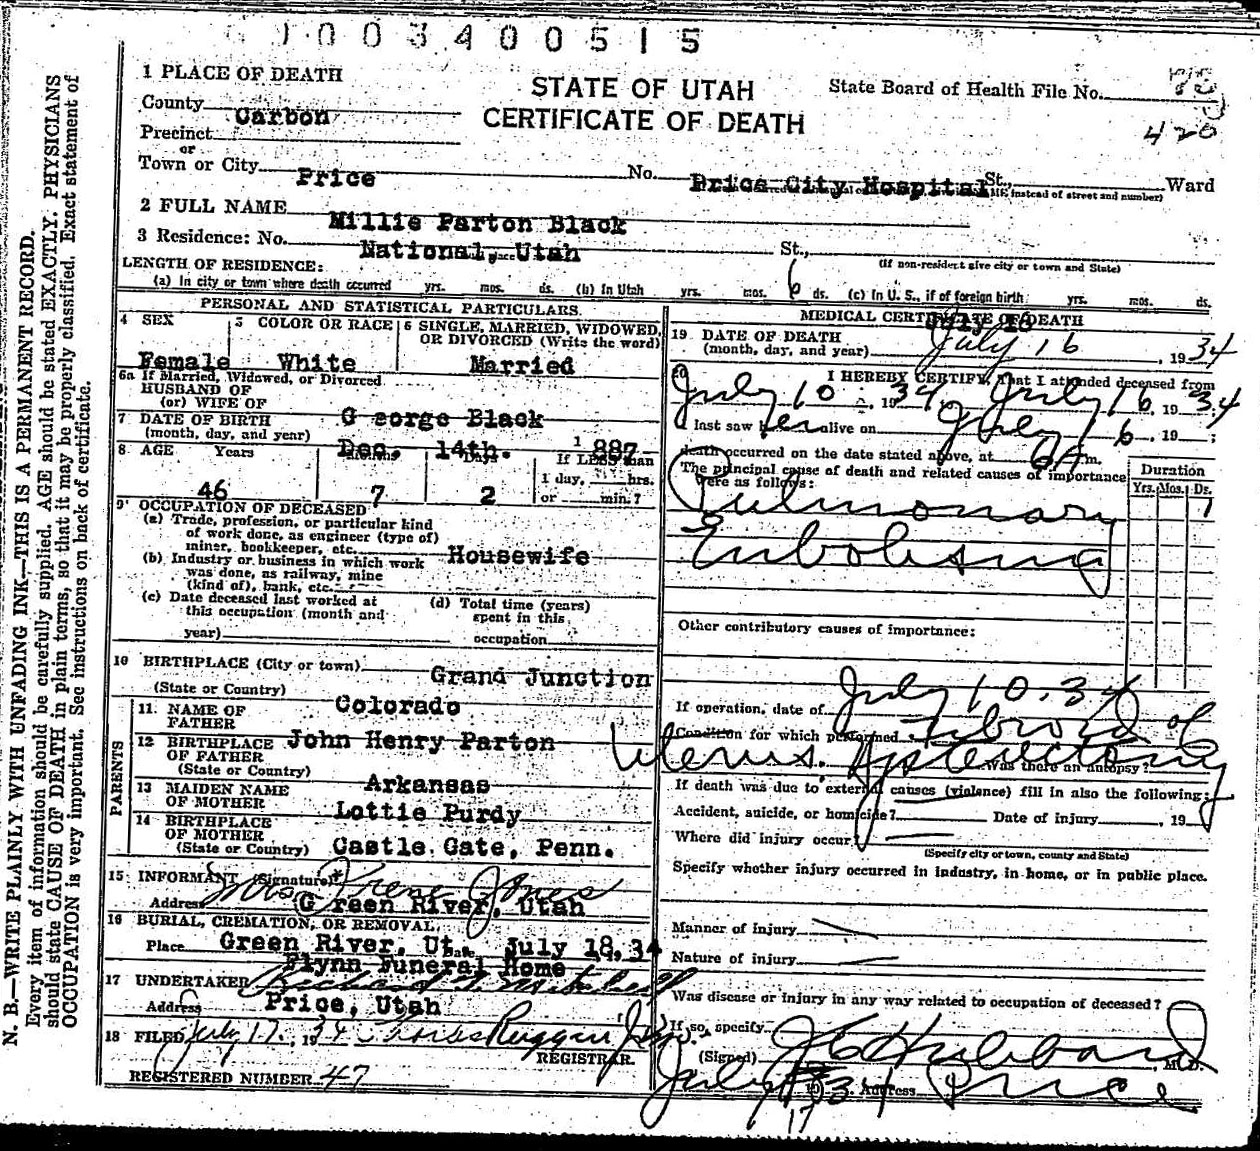 1003400515
1 PLACE OF DEATH
STATE OF UTAH
CERTIFICATE OF DEATH
State Board of Health File No.
420
County Carbon
Precinct
or
Town or City Price No. Price City Hospital St., Ward
instead of street and number)
2 FULL NAME Millie Parton Black
3 Residence: No. National, Utah St.,
(If non-resident give city or town and State)
LENGTH OF RESIDENCE:
(a) In city or town where death occurred yrs. mos. ds. (b) In Utah yrs. mos. 6 ds. (c) In U. S., if of foreign birth: yrs. mos. ds.
PERSONAL AND STATISTICAL PARTICULARS.
4 SEX Female
5 COLOR OR RACE White
6 SINGLE, MARRIED, WIDOWED,
OR DIVORCED (Write the word)
Married
6a If Married, Widowed, or Divorced
HUSBAND OF
(or) WIFE OF G eorge Black
7 DATE OF BIRTH
(month, day, and year) Dec. 14th. 1887
8 AGE Years Months Days If LESS than
1 day, hrs.
or min.?
46 7 2
9 OCCUPATION OF DECEASED
(a) Trade, profession, or particular kind
of work done, as engineer (type of)
miner, bookkeeper, etc. Housewife
(b) Industry or business in which work
was done, as railway, mine
(kind of), bank, etc.
(c) Date deceased last worked at
this occupation (month and
year)
(d) Total time (years)
spent in this
occupation
10 BIRTHPLACE (City or town) Grand Junction
(State or Country) Colorado
PARENTS
11. NAME OF
FATHER John Henry Parton
12 BIRTHPLACE
OF FATHER
(State or Country) Arkansas
13 MAIDEN NAME
OF MOTHER Lottie Purdy
14 BIRTHPLACE
OF MOTHER
(State or Country) Castle Gate, Penn.
15 INFORMANT (Signature) Mrs Irene Jones
Address G reen River, Utah
16 BURIAL, CREMATION, OR REMOVAL
Place Green River, Ut. Date July 18, 34
Flynn Funeral Home
17 UNDERTAKER Richard Mitchell
Address Price, Utah
18 FILED July 17, 1934
REGISTRAR.
REGISTERED NUMBER 47
MEDICAL CERTIFICATE OF DEATH
July 16
19 DATE OF DEATH
(month, day, and year) July 16, 1934
20 I HEREBY CERTIFY, That I attended deceased from
July 10, 1934, July 16, 1934
I last saw her alive on July 16, 19 ;
death occurred on the date stated above, at 6 A m.
The principal cause of death and related causes of importance
were as follows:
Duration
Yrs. Mos. Ds.
1
Pulmonary
Embolism
Other contributory causes of importance:
If operation, date of July 10. 34
Condition for which performed Fibroid of
Uterus. Hysterectomy
Was there an autopsy?
If death was due to external causes (violence) fill in also the following:
Accident, suicide, or homicide? Date of injury , 19
Where did injury occur?
(Specify city or town, county and State)
Specify whether injury occurred in industry, in home, or in public place.
Manner of injury
Nature of injury
Was disease or injury in any way related to occupation of deceased?
If so, specify
(Signed) J C Hubbard, M. D.
July 17 1934 Address Price
N. B.—WRITE PLAINLY WITH UNFADING INK—THIS IS A PERMANENT RECORD.
Every item of information should be carefully supplied. AGE should be stated EXACTLY. PHYSICIANS
should state CAUSE OF DEATH in plain terms, so that it may be properly classified. Exact statement of
OCCUPATION is very important. See instructions on back of certificate.